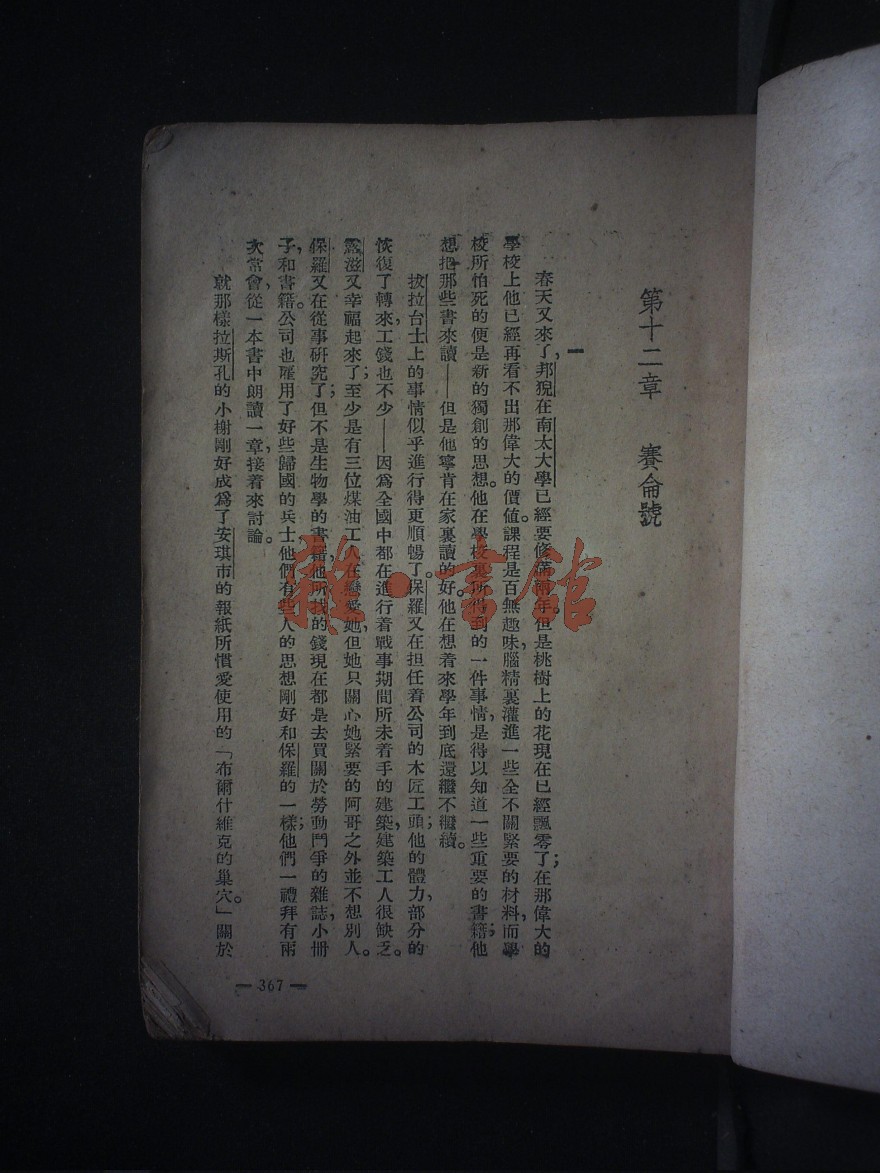 第十二章　賽侖號
一
春天又來了，邦猊在南太大學已經要修滿兩年。但是桃樹上的花現在已經飄零了；在那偉大的
學校上他已經再看不出那偉大的價值。課程是百無趣味，腦精裏灌進一些全不關緊要的材料，而學
校所怕死的便是新的獨創的思想。他在學校裏所得到的一件事情，是得以知道一些重要的書籍；他
想把那些書來讀——但是他寧肯在家裏讀的好。他在想着來學年到底還繼不繼續。
拔拉台士上的事情似乎進行得更順暢了。保羅又在担任着公司的木匠工頭；他的體力，部分的
恢復了轉來，工錢也不少——因爲全國中都在進行着戰事期間所未着手的建築，建築工人很缺乏。
露滋又幸福起來了；至少是有三位煤油工人在戀愛她，但她只關心她緊要的阿哥之外並不想別人。
保羅又在從事研究了；但不是生物學的書籍，他所找的錢現在都是去買關於勞動鬥爭的雜誌，小冊
子，和書籍。公司也雇用了好些歸國的兵士，他們有些人的思想剛好和保羅的一樣；他們一禮拜有兩
次常會，從一本書中朗讀一章，接着來討論。
就那樣拉斯孔的小榭剛好成爲了安琪市的報紙所慣愛使用的「布爾什維克的巢穴。」關於
— 367 —
雜·書館